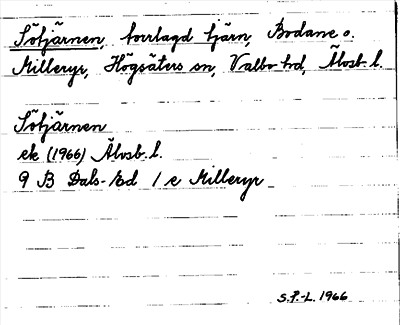 Sötjärnen, torrlagd tjärn, Bodane o.
Milleryr, Högsäters sn, Valbo hd, Älvsb. l.
Sötjärnen
ek (1966) Älvsb. l.
9 B Dals-Ed 1 e Milleryr
S.P.-L. 1966